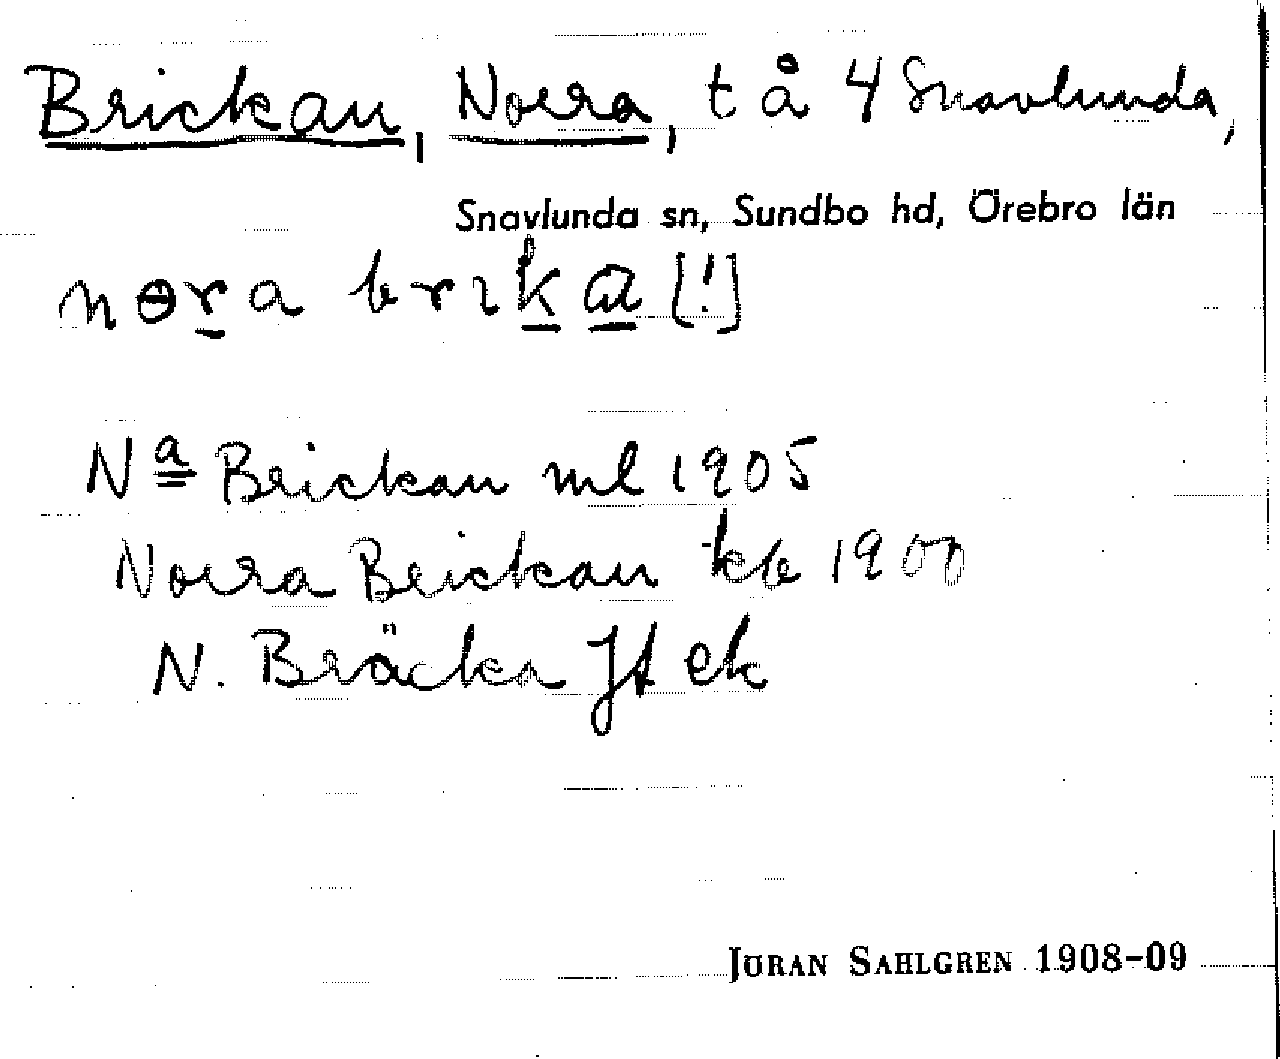 Brickan, Norra, t å 4 Snavlunda,
Snavlunda sn, Sundbo hd, Örebro län
nɵra brıka [!]
Na Brickan ml 1905
Norra Brickan kb 1900
N. Bräcka Jt ek
JÖRAN SAHLGREN 1908-09